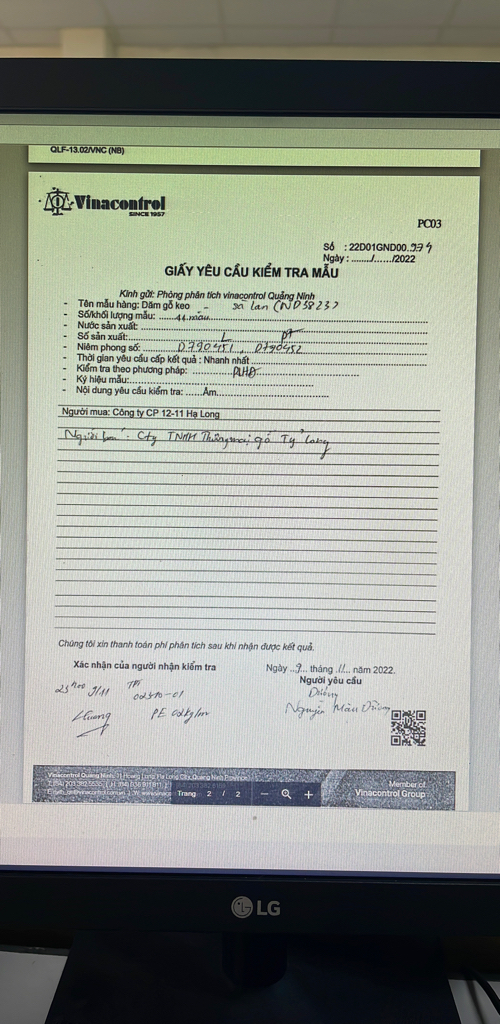 QLF-13.02/VNC (NB)
Vinacontrol
SINCE 1957
PC03
Số : 22D01GND00..974
Ngày : ......../....../2022
GIẤY YÊU CẦU KIỂM TRA MẪU
Kính gửi: Phòng phân tích vinacontrol Quảng Ninh
- Tên mẫu hàng: Dăm gỗ keo - sà lan (ND 3823)
- Số/khối lượng mẫu: 11 mẫu
- Nước sản xuất:
- Số sản xuất: L PT
- Niêm phong số: D790451, D790452
- Thời gian yêu cầu cấp kết quả : Nhanh nhất
- Kiểm tra theo phương pháp: PLHĐ
- Ký hiệu mẫu:
- Nội dung yêu cầu kiểm tra: ......Ẩm
Người mua: Công ty CP 12-11 Hạ Long
Người bán : Cty TNHH Thương mại gỗ Tỷ Long
Chúng tôi xin thanh toán phí phân tích sau khi nhận được kết quả.
Xác nhận của người nhận kiểm tra
Ngày ..9... tháng .11... năm 2022.
Người yêu cầu
23h00 9/11
Dương
Nguyễn Mậu Dương
Vinacontrol Quảng Ninh: 11 Hoàng Long, Ha Long City, Quang Ninh Province
Member of
Vinacontrol Group
Trang 2 / 2
LG